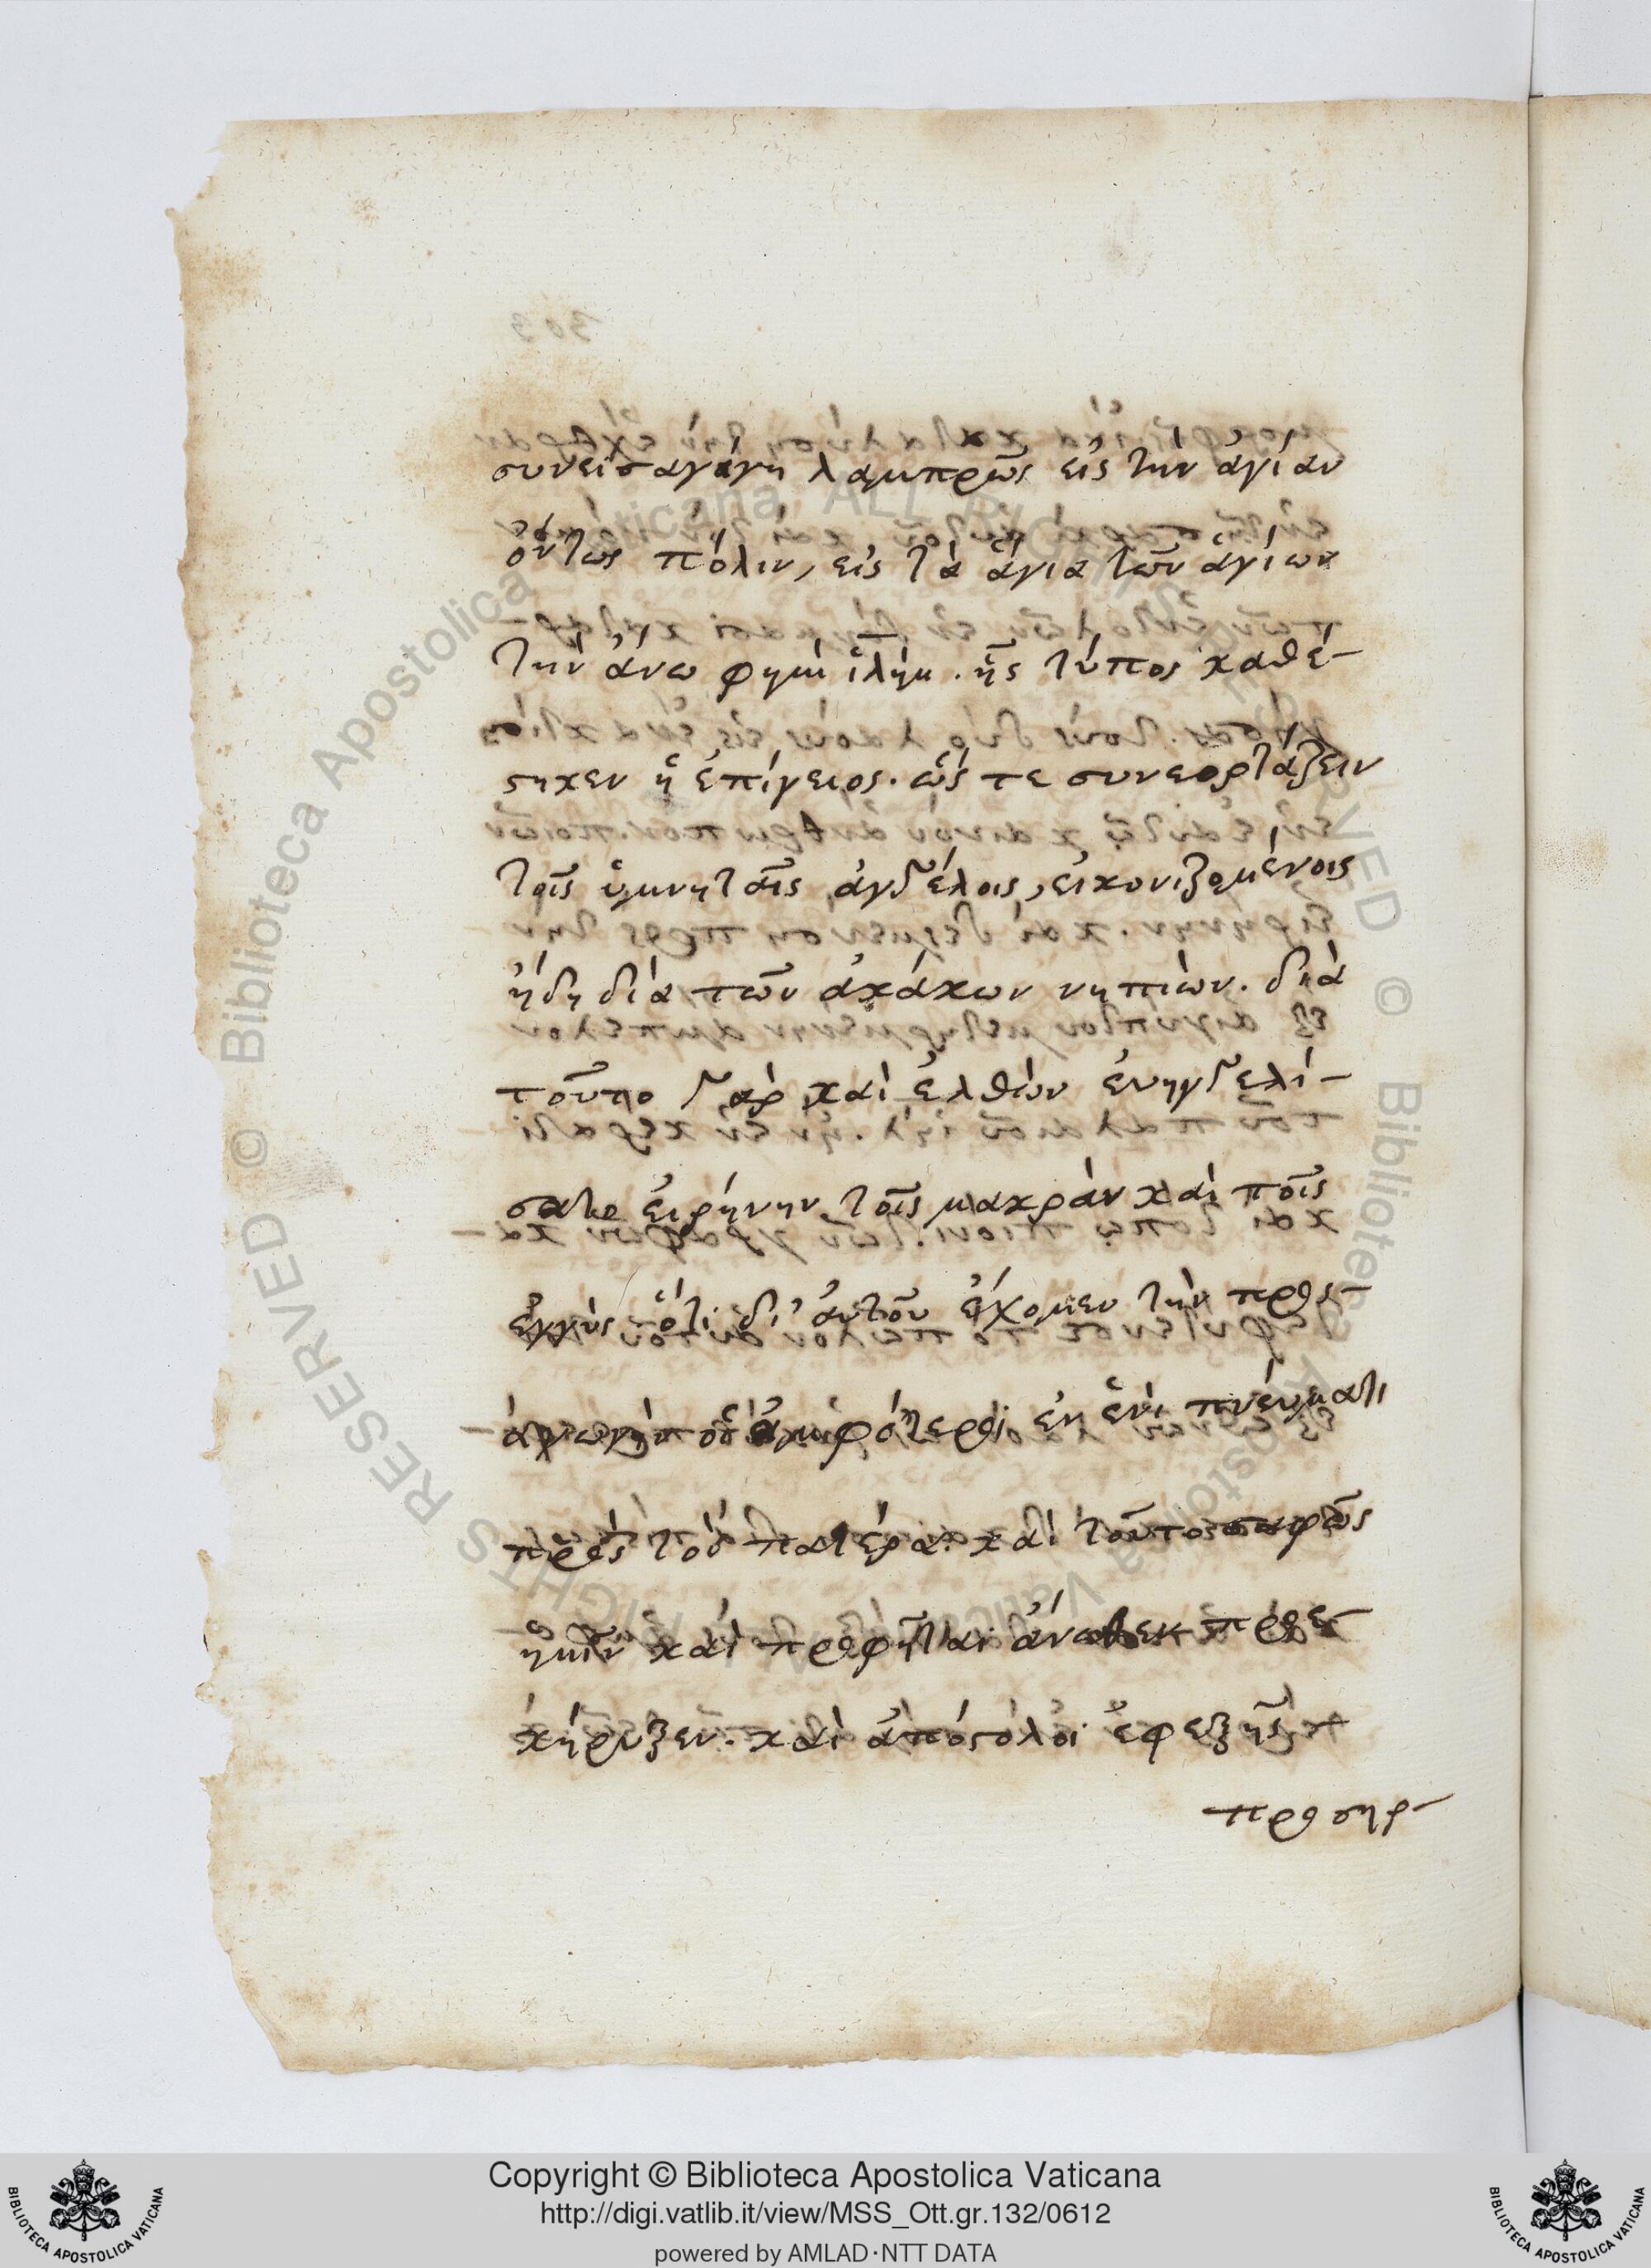 συνεισαγάγη λαμπρῶς εἰς τὴν ἁγίαν
ὄντως πόλιν, εἰς τὰ ἅγια τῶν ἁγίων
τὴν ἄνω φημὶ ἰ̅λ̅η̅μ̅. ἧς τύπος καθέ-
στηκεν ἡ ἐπίγειος. ὥς τε συνεορτάζειν
τοῖς ὑμνηταῖς ἀγγέλοις, εἰκονιζομένοις
ἤδη δία τῶν ἀκάκων νηπιών. διὰ
τοῦτο γὰρ καὶ ἐλθὼν ἐυηγγελί-
σατο εἰρήνην τοῖς μακρὰν καὶ τοῖς
ἐγγὺς ὅτι δι' ἀυτοῦ ἔχομεν τὴν προς-
ἀγωγὴν οἱ ἀμφότεροι ἐν ἑνὶ πνεύματι
πρὸς τὸν πατέρα. καὶ τοῦτο σαφῶς
ἡμῖν καὶ προφῆται ἄνωθεν προε-
κήρυξεν. καὶ ἀπόστολοι ἐφεξῆς
προσηρ-
Copyright © Biblioteca Apostolica Vaticana
http://digi.vatlib.it/view/MSS_Ott.gr.132/0612
powered by AMLAD·NTT DATA
BIBLIOTECA APOSTOLICA VATICANA
BIBLIOTECA APOSTOLICA VATICANA